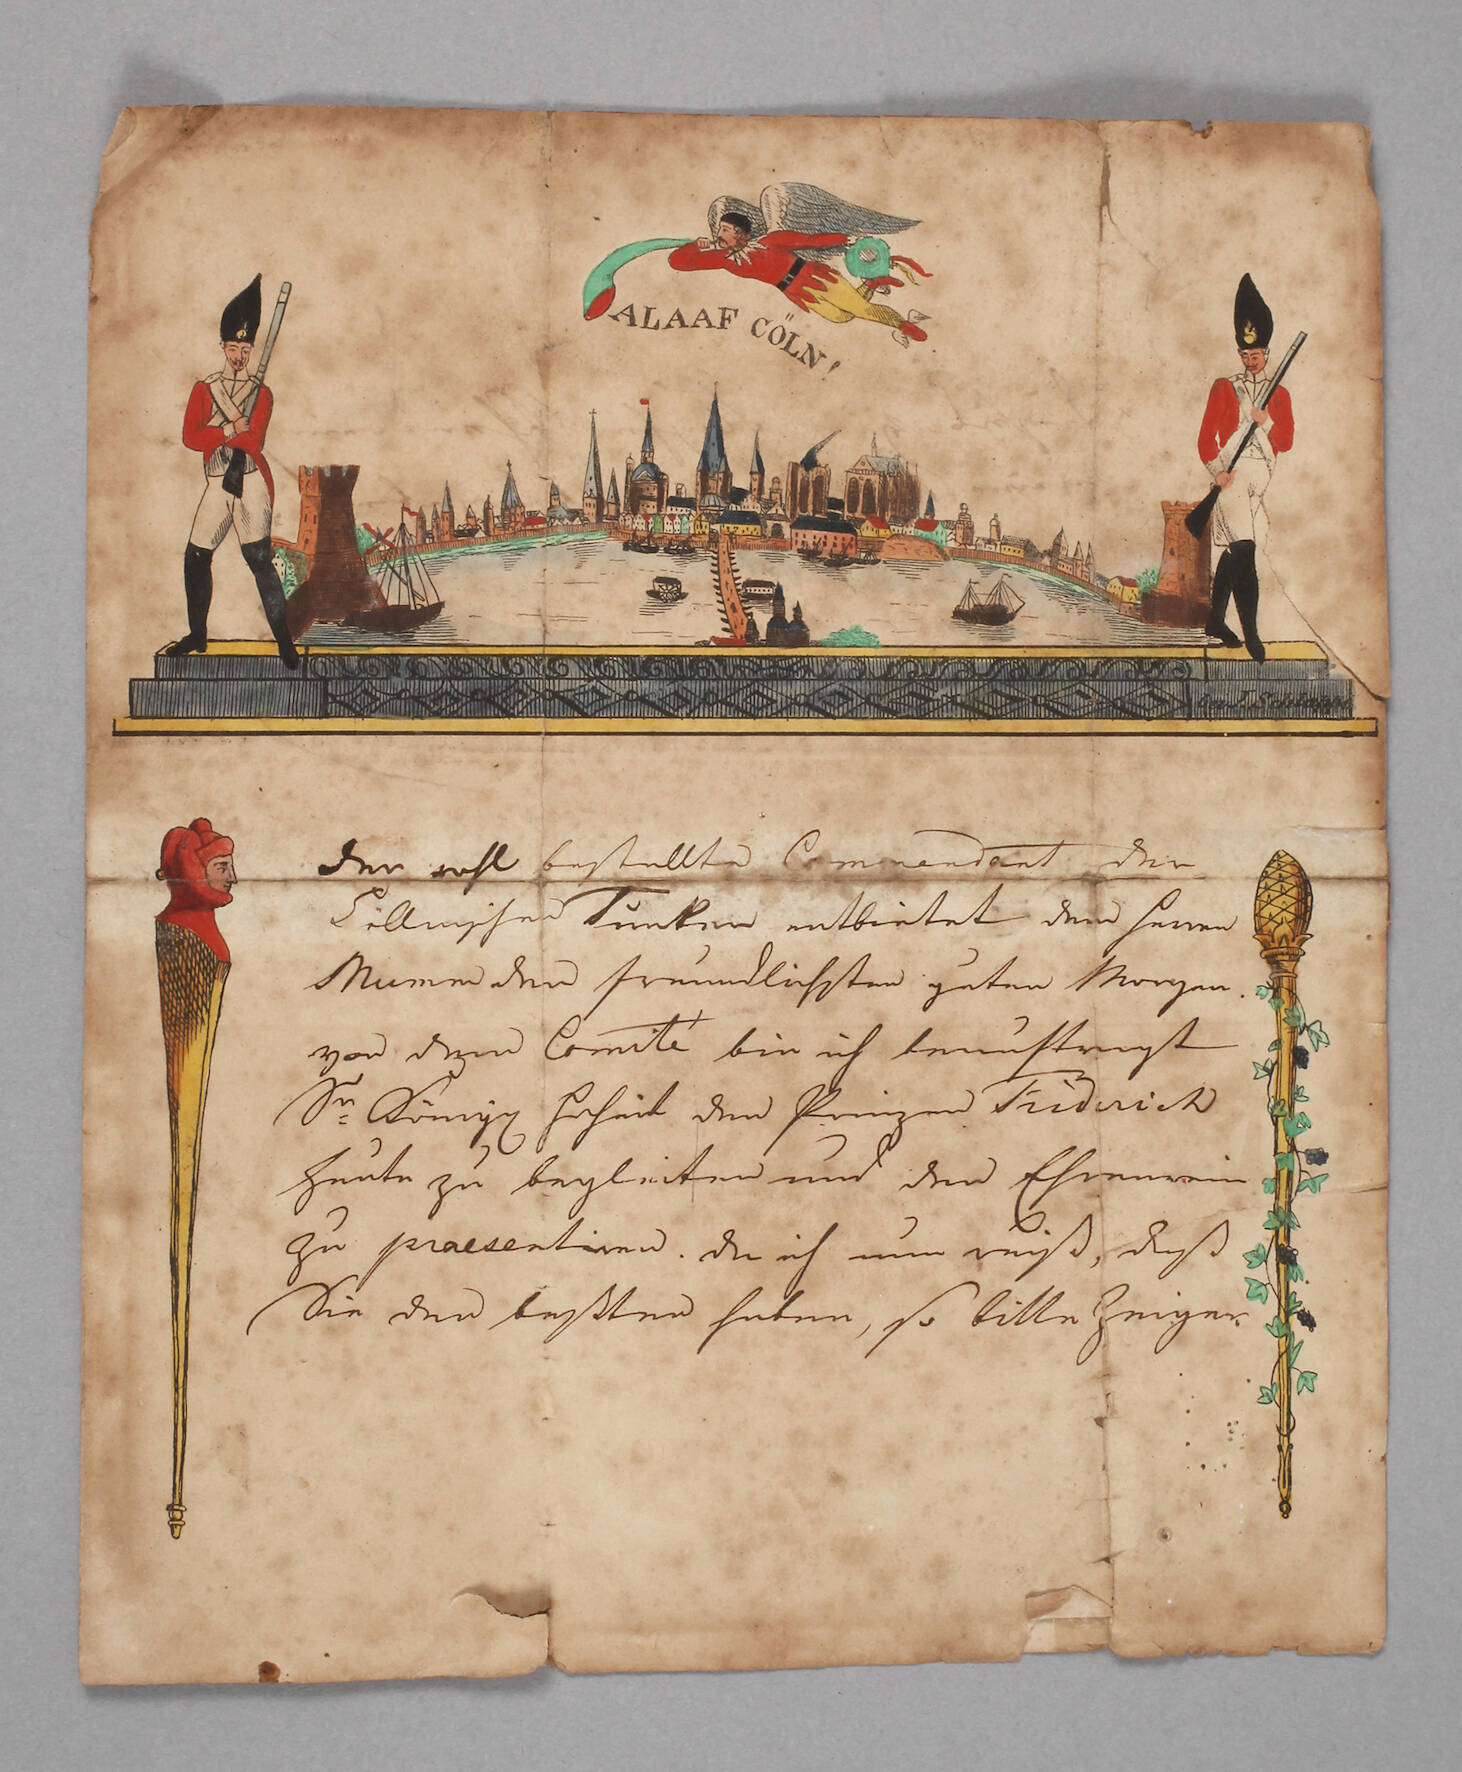 ALAAF CÖLN!
bei J. Schlappal
Der wohl bestellte Commendant der
Cöllnischen Funken entbietet dem Herren
Mumm den freundlichsten guten Morgen.
von dem Comité bin ich beauftragt
Sr Königl Hoheit den Prinzen Friderich
heute zu begleiten und den Ehrenwein
zu praesentiren. da ich nun weiß, daß
Sie den beßten haben, so bitte Zeiger